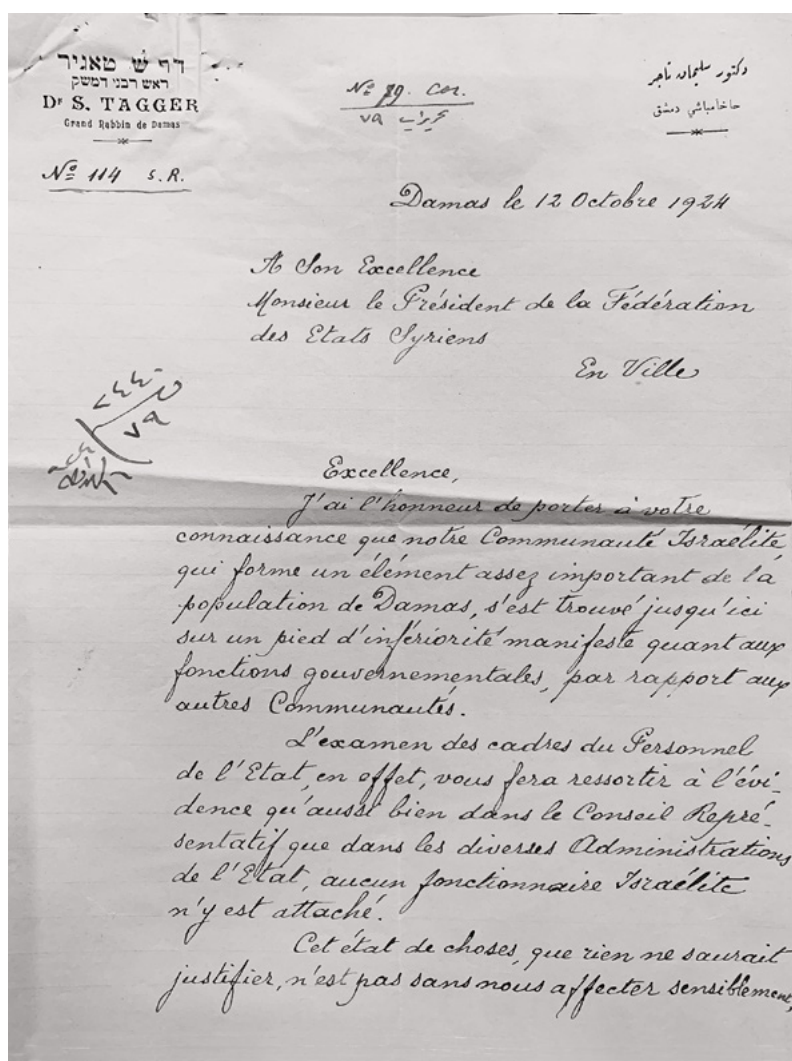 דר׳ ש טאגיר
ראש רבני דמשק
Dr S. TAGGER
Grand Rabbin de Damas
Nº 114 S.R.
Nº 79. Cor.
٧٩
دكتور سليمان تاجر
حاخامباشي دمشق
Damas le 12 Octobre 1924
A Son Excellence
Monsieur le Président de la Fédération
des Etats Syriens
En Ville
٧٩
Excellence,
J'ai l'honneur de porter à votre
connaissance que notre Communauté Israélite,
qui forme un élément assez important de la
population de Damas, s'est trouvé jusqu'ici
sur un pied d'infériorité manifeste quant aux
fonctions gouvernementales, par rapport aux
autres Communautés.
L'examen des cadres du Personnel
de l'Etat, en effet, vous fera ressortir à l'évi-
dence qu'aussi bien dans le Conseil Repré-
sentatif que dans les diverses Administrations
de l'Etat, aucun fonctionnaire Israélite
n'y est attaché.
Cet état de choses, que rien ne saurait
justifier, n'est pas sans nous affecter sensiblement,